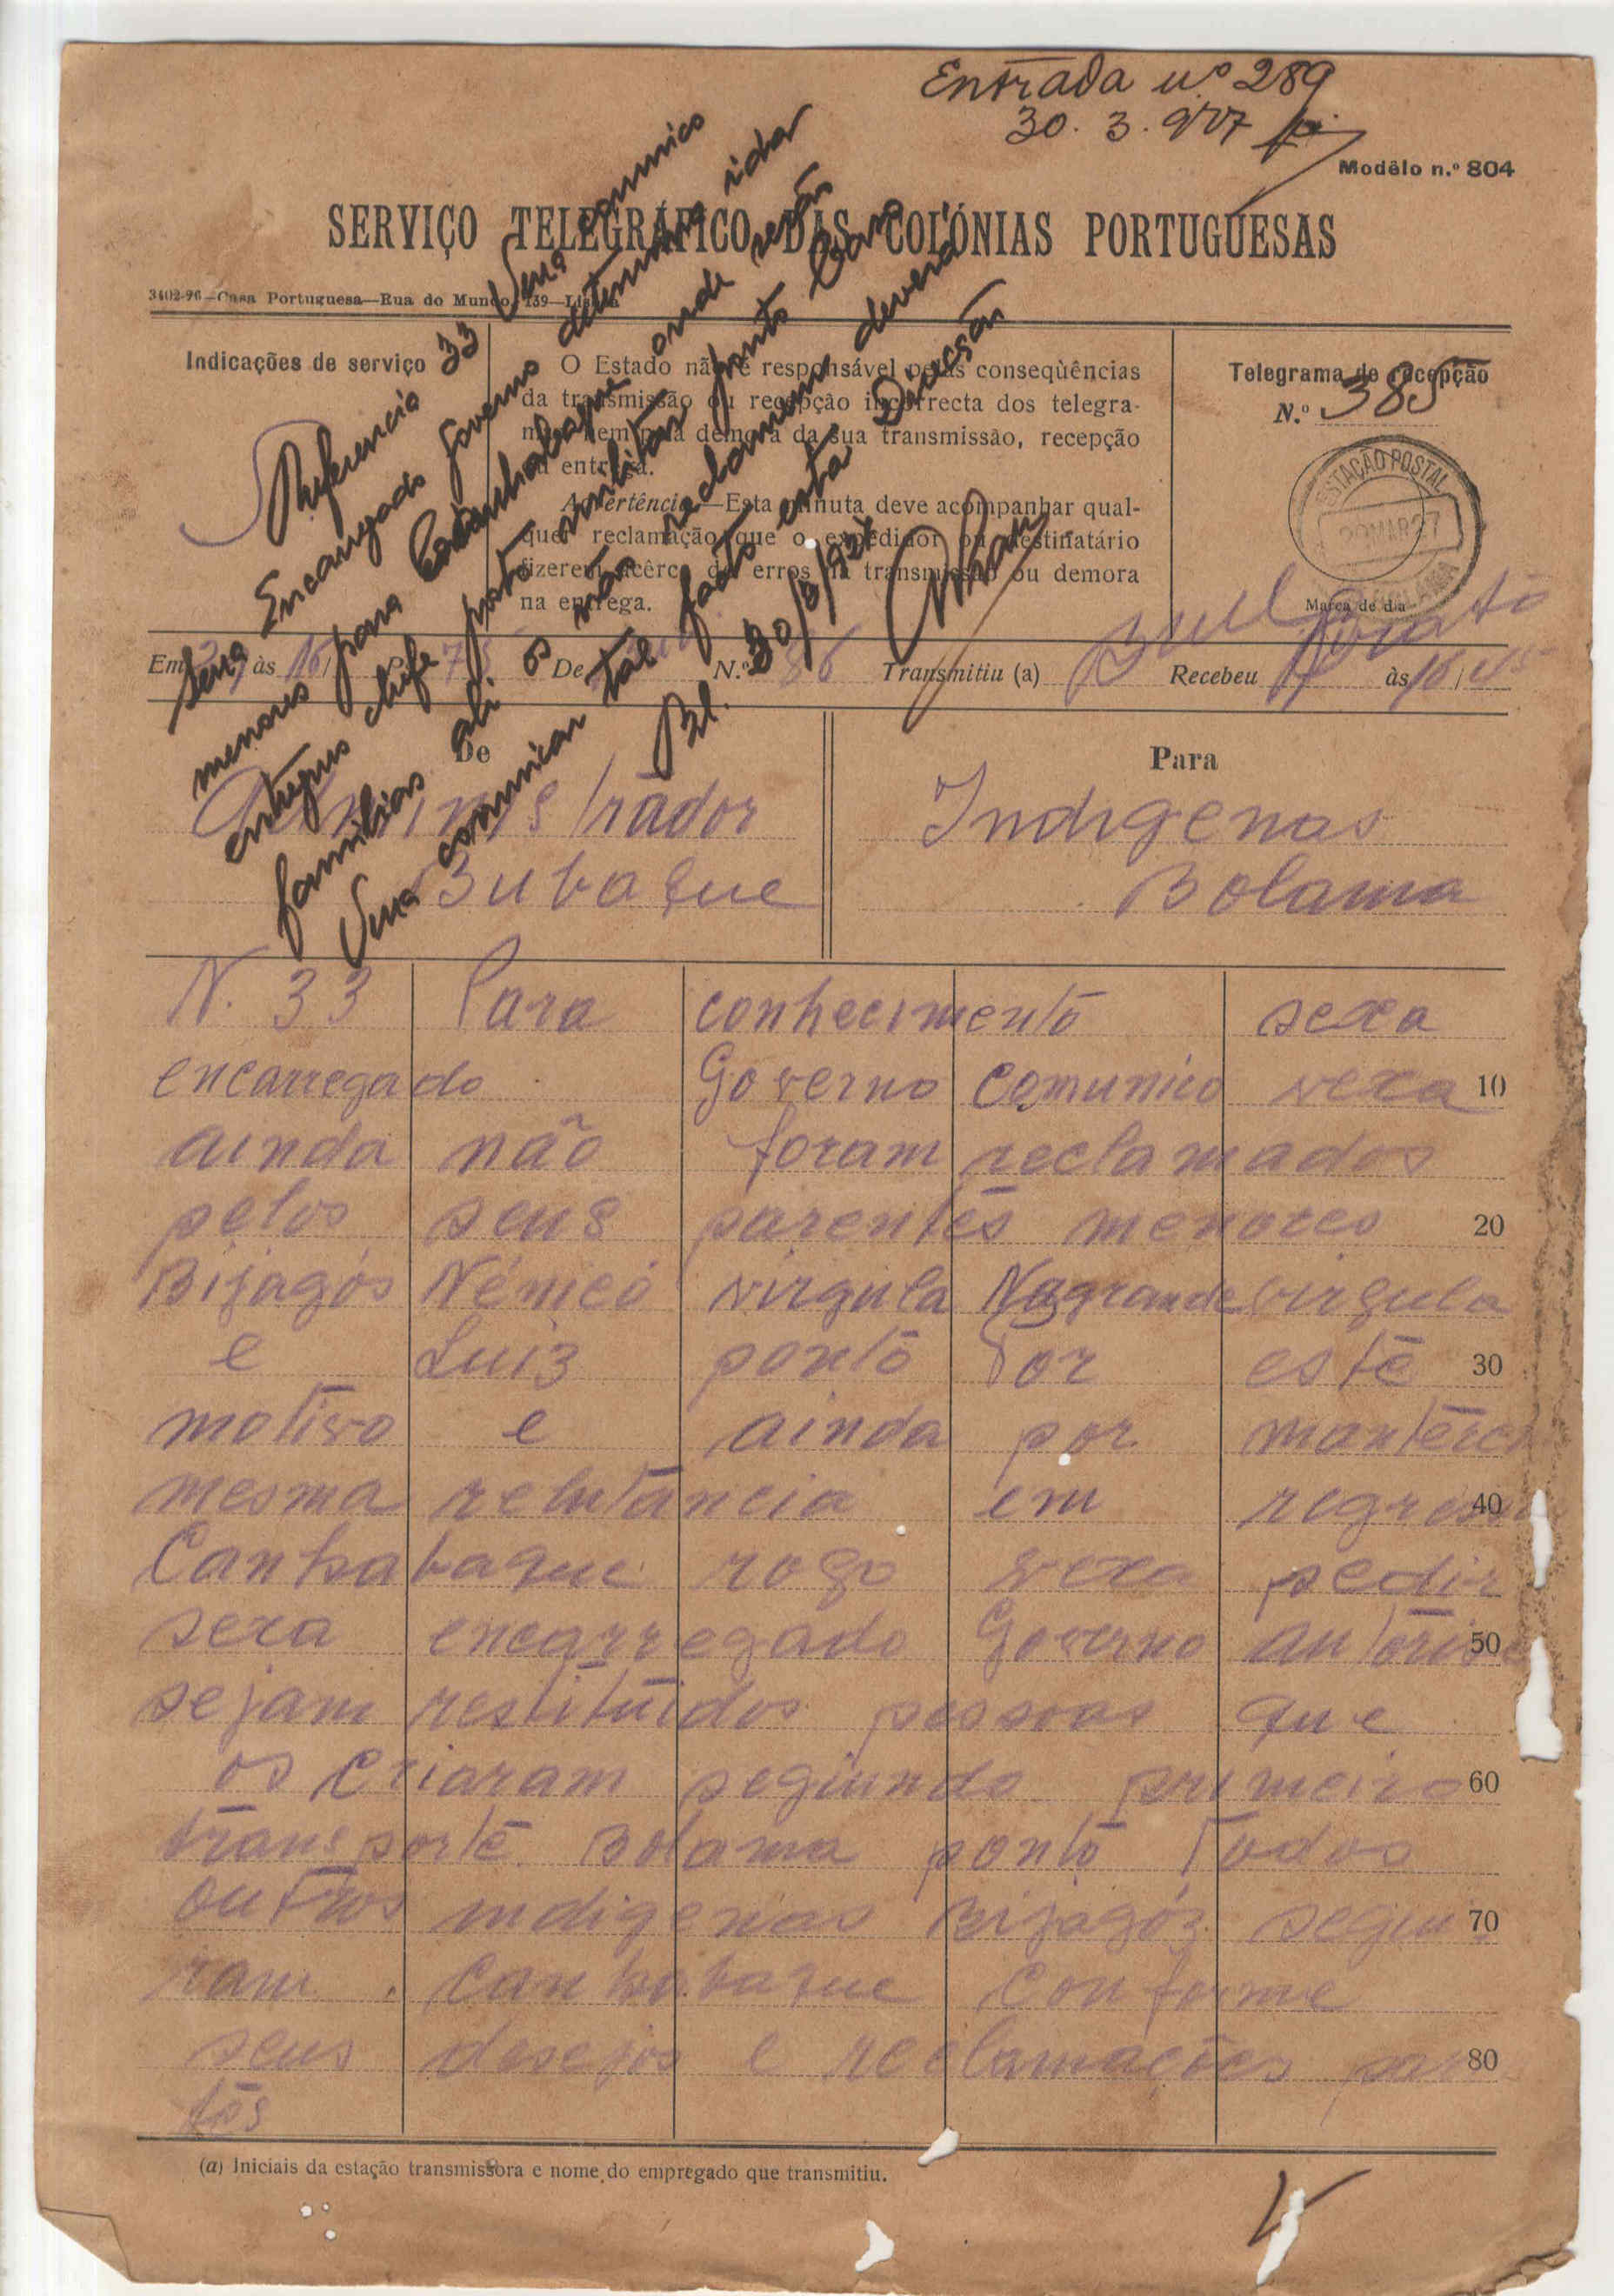 Entrada nº 289
30. 3. 927
Modêlo n.º 804
SERVIÇO TELEGRÁFICO DAS COLÓNIAS PORTUGUESAS
3402-96—Casa Portuguesa—Rua do Mundo, 139—Lisboa
Indicações de serviço
O Estado não é responsável pelas conseqùências
da transmissão ou recepção incorrecta dos telegra-
mas nem pela demora da sua transmissão, recepção
ou entrega.
Advertência.—Esta minuta deve acompanhar qual-
quer reclamação que o expedidor ou destinatário
fizerem acêrca de erros na transmissão ou demora
na entrega.
Telegrama de recepção
N.º 385
ESTAÇÃO POSTAL
29 MAR 27
Marca de dia
Referencia 33 Sexa comunico
Sexa Encarregado Governo determina
menores para Canhabaque onde serão
entregues chefe posto militar
familias ali os não reclamarem deverá
Vexa comunicar tal facto esta Direcção
Bl. 30/3/927
Em 29 às 16/ P. 75 De N.º 86 Transmitiu (a) Recebeu às 16/45
De
Administrador
Bubaque
Para
Indigenas
Bolama
N. 33 Para conhecimento sexa
encarregado Governo comunico vexa 10
ainda não foram reclamados
pelos seus parentes menores 20
Bijagós Némeó virgula Nagrande virgula
e Luiz ponto Por este 30
motivo e ainda por manterem
mesma relutância em regressar 40
Canhabaque rogo vexa pedir
sexa encarregado Governo autorise 50
sejam restituidos pessoas que
os criaram seguindo primeiro 60
transporte Bolama ponto Todos
outros indigenas Bijagóz segui 70
ram Canhabaque conforme
seus desejos e reclamações paren 80
tes
(a) Iniciais da estação transmissora e nome do empregado que transmitiu.